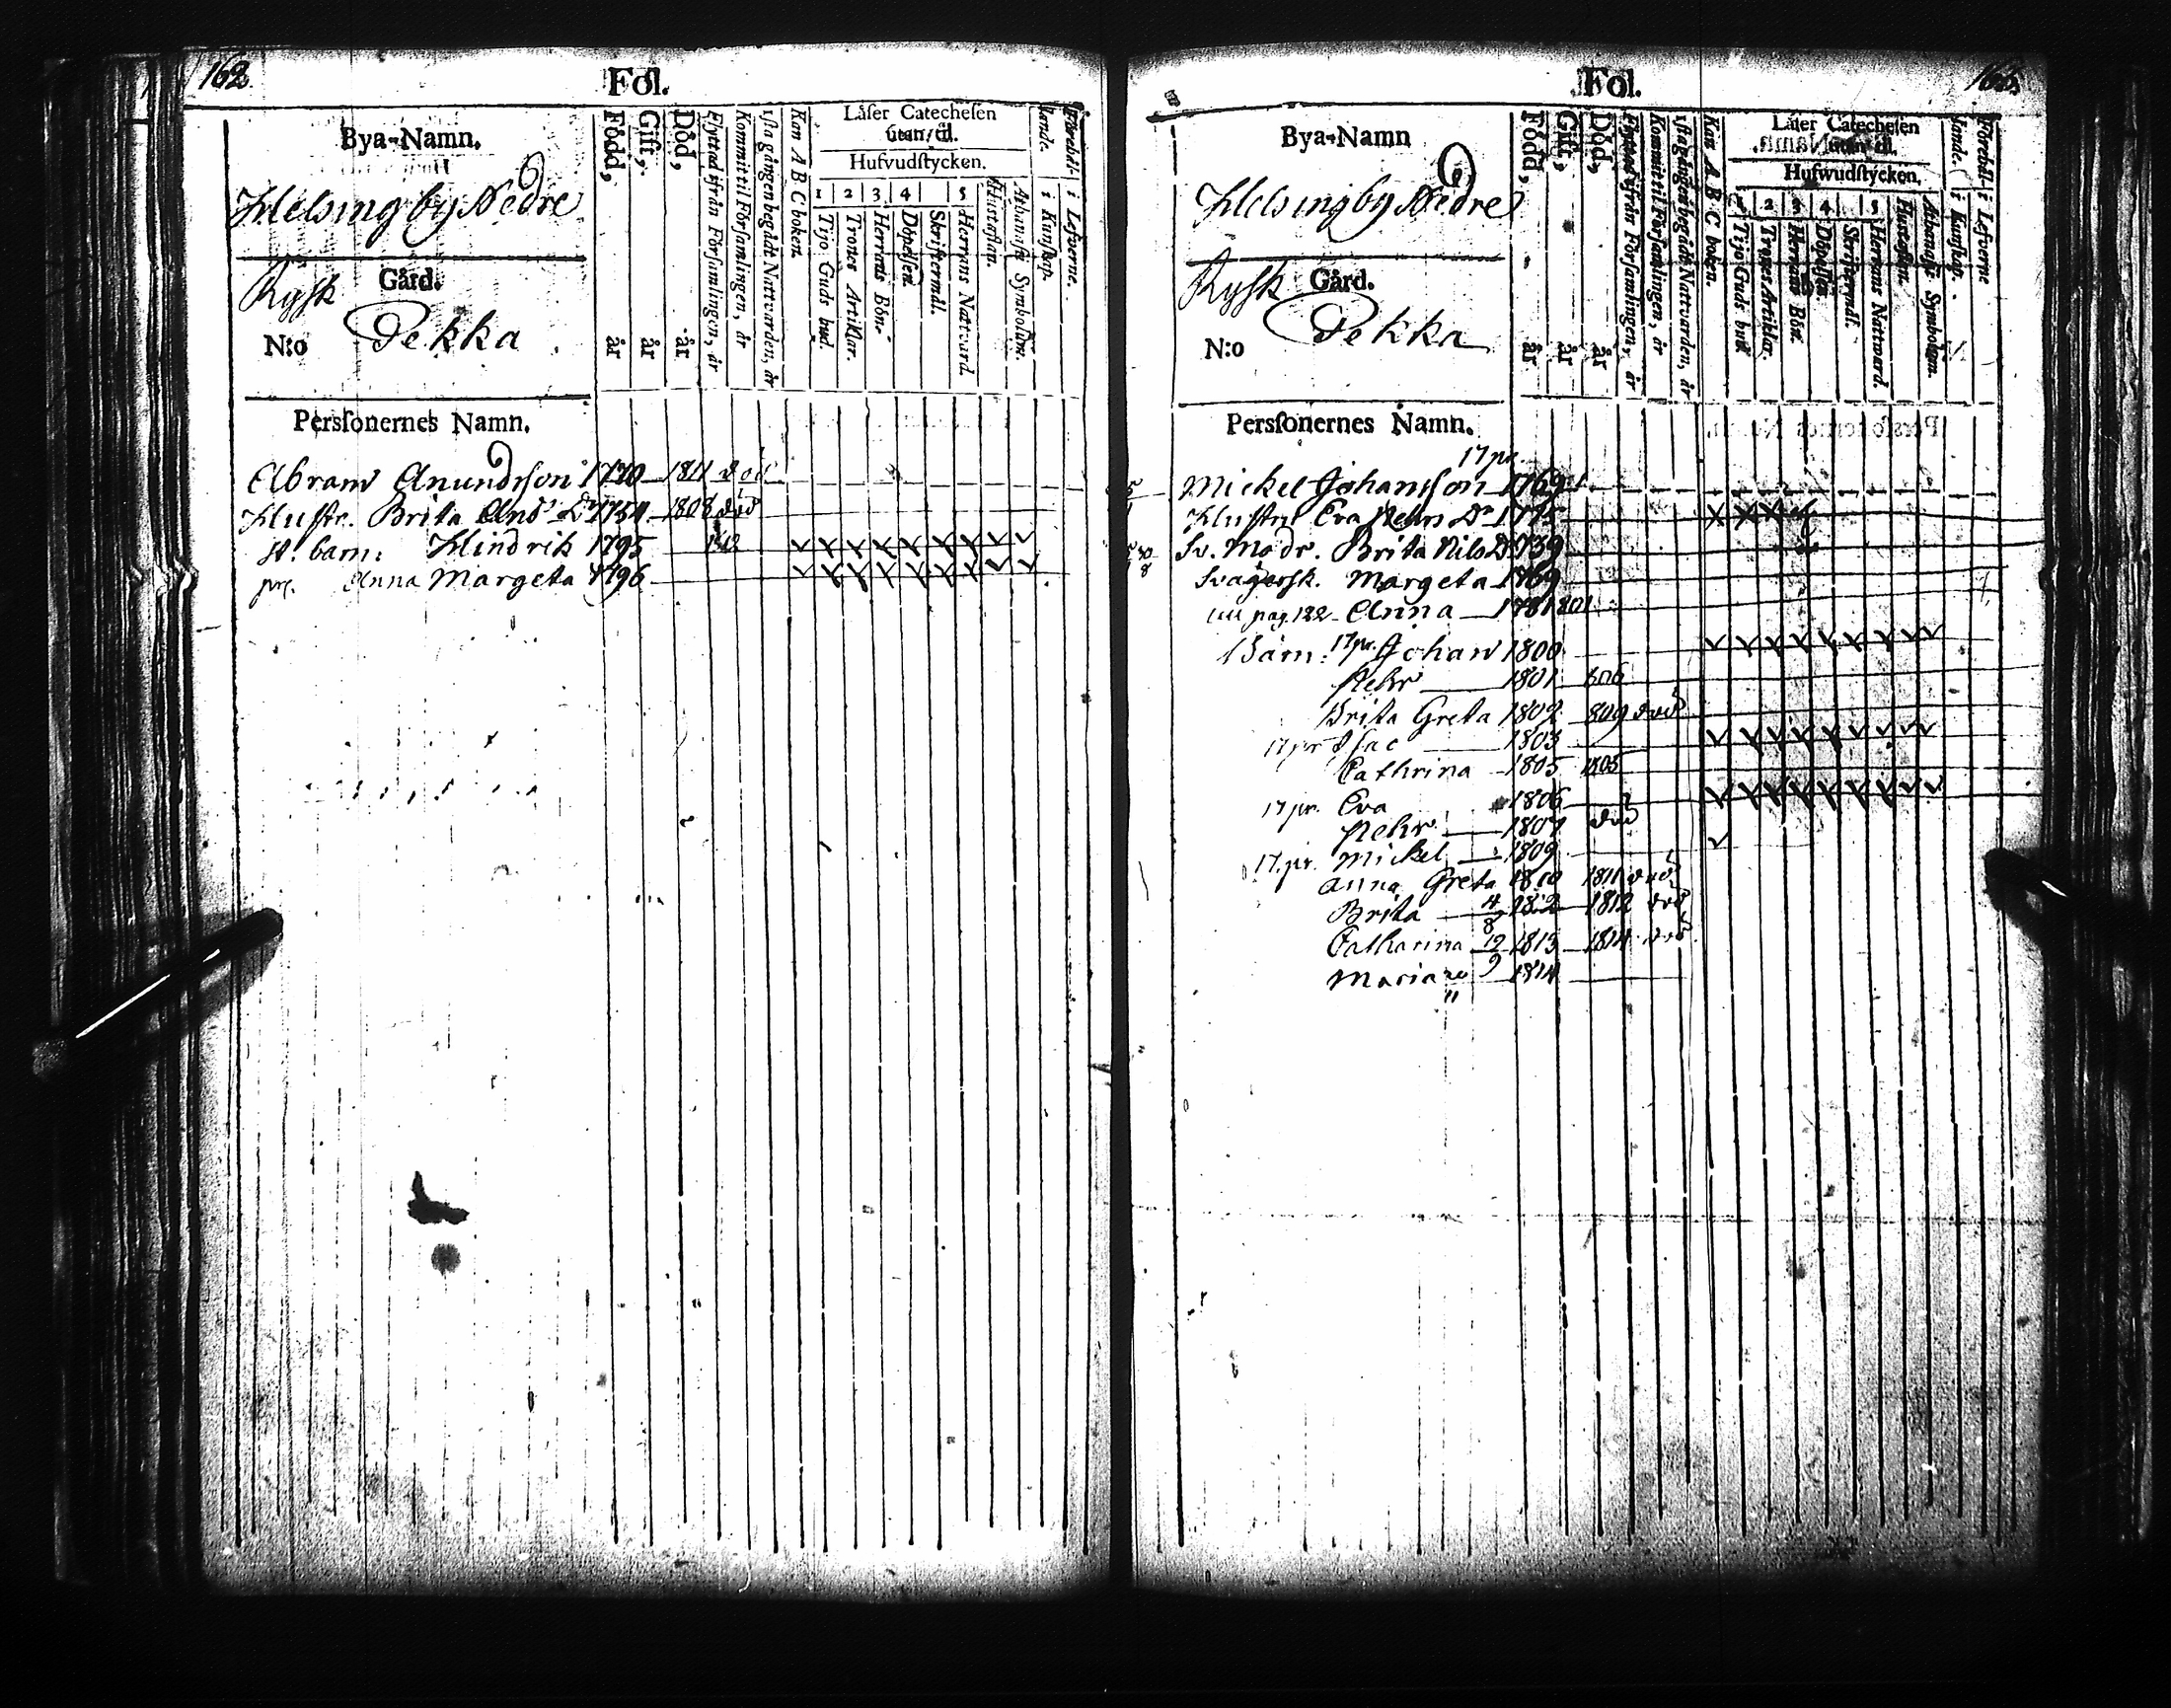 162.
Fol.
Bya-Namn.
Helsingby Nedre
Gård.
Rysk
Pekka
N:o
Persfonernes Namn.
Född, år
Gift, år
Död, år
Flyttad ifrån Församlingen, år
Kommit til Församlingen, år
ista gången begådt Nattvarden, år
Kan A B C boken.
Läser Catechesen
utan/til.
Hufvudstycken.
1 2 3 4 5
Tijo Guds bud.
Trones Artiklar.
Herrans Bön.
Döpelsen.
Skriftermål.
Herrans Nattvard.
Hustaflan.
Athanasii Symbolum.
Förehål-
lande.
i Kunskap.
i Lefverne.
Abram Anundsson 1770 1811 död
Hustr. Brita And: Dr 1754 1808 död
St. barn: Hindrik 1795 1812
Anna Margeta 1796
Fol.
Bya-Namn
Helsingby Nedre
Gård.
Rysk
Pekka
N:o
Persfonernes Namn.
Född, år
Gift, år
Död, år
Flyttad ifrån Församlingen, år
Kommit til Församlingen, år
ista gången begådt Nattvarden, år
Kan A B C boken.
Läser Catechesen
utan til.
Hufwudstycken.
1 2 3 4 5
Tijo Guds bud
Trones Artiklar.
Herrans Bön.
Döpelsen.
Skriftermål.
Herrans Nattward.
Hustaflan.
Athanasii Symbolum.
Förehål-
lande.
i Kunskap.
i Lefverne
17 pr.
Mickel Johansson 1769
Hustru Eva Mehrs Dr 1775
Sv. Modr. Brita Nils D 1739
Svägersk. Margeta 1769
pag. 122 Anna 1781 801
Barn: 17 pr. Johan 1800
Mehr 1801 806
Brita Greta 1802 809 död
17 pr Isac 1803
Cathrina 1805 1805
17 pr. Eva 1806
Mehr 1807 död
17. pr. Mickel 1809
Anna Greta 1810 1811 död
Brita 4/8 1812 1812 död
Catharina 12/9 1813 1814 död
Maria 20/11 1814